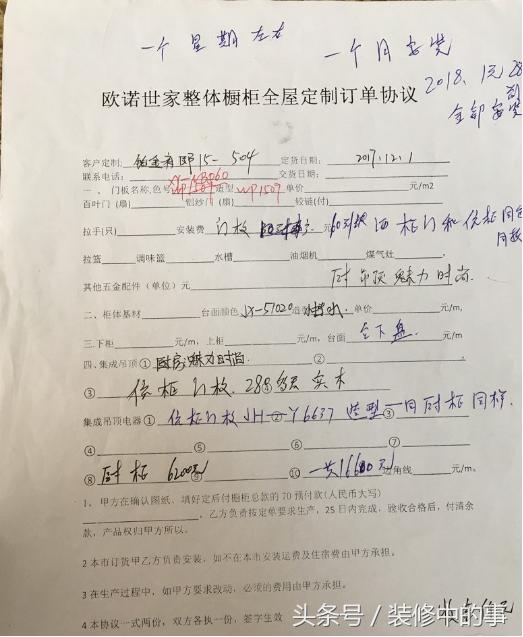 一个星期左右
一个月安装
2018、1元28
前
全部安装
欧诺世家整体橱柜全屋定制订单协议
客户定制: 铂金 15-504 定货日期: 2017.12.1
联系电话: 交货日期:
一、门板名称,色号 造型 WP1507 单价 元/m2
百叶门(扇) 铝纱门(扇) 铰链(付)
拉手(只) 安装费 门板 元 酒柜门和衣柜同色
同板
拉篮 调味篮 水槽 油烟机 煤气灶
其他五金配件(单位)元 厨吊顶魅力时尚
二、柜体基材 台面颜色 JX-57020 单价 元/m。
三.下柜 元/m,上柜 元/m,台面 全下盘 元/m。
四、集成吊顶① 厨房魅力时尚 ②
③ 衣柜门板 288 实木
集成吊顶电器① 衣柜门板JH-②-Y6637 造型一同③厨柜同样
④ ⑤ ⑥ ⑦
⑧ 厨柜 6200元 ⑨ ⑩ 一共16600元 边角线 元/m。
1、甲方在确认图纸、填好定后付橱柜总款的70预付款(人民币大写)
,乙方负责按定单要求生产,25日内完成,验收合格后,付清余
款,产品权归甲方所以。
2 本市订货甲乙方负责安装,如不在本市安装运费及住宿费由甲方承担。
3 在生产过程中,如甲方要求改动,必须的费用由甲方承担。
4 本协议一式两份,双方各执一份,签字生效
头条号/装修中的事